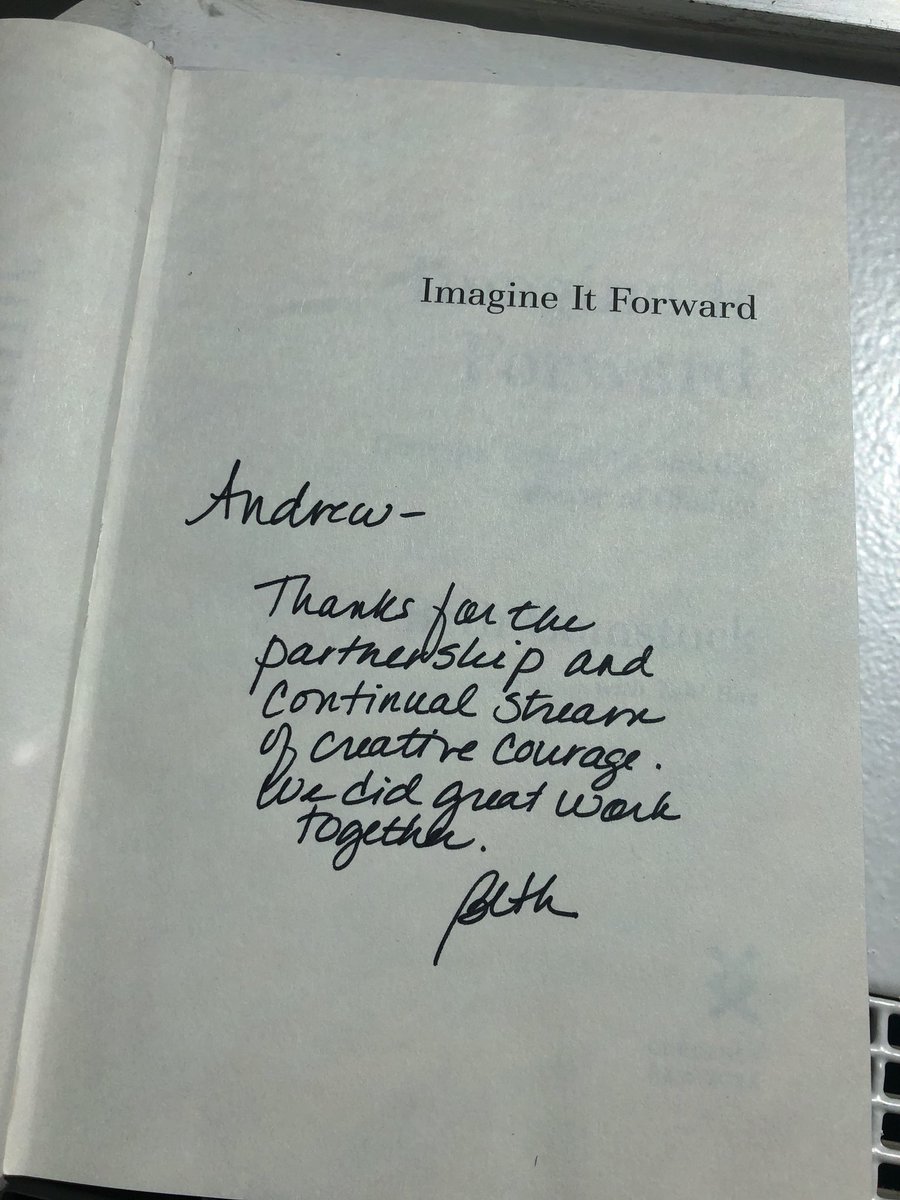 Imagine It Forward
Andrew-
Thanks for the
partnership and
continual stream
of creative courage.
We did great work
together.
Beth